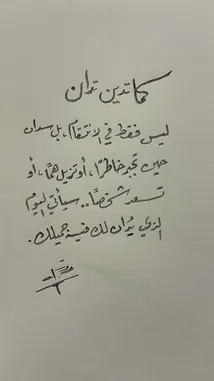 كما تدين تدان
ليس فقط في الانتقام، بل ستدان
حين تجبر خاطرًا، أو تزيل همًا، أو
تسعد شخصًا.. سيأتي اليوم
الذي يُدان لك فيه جميلك.